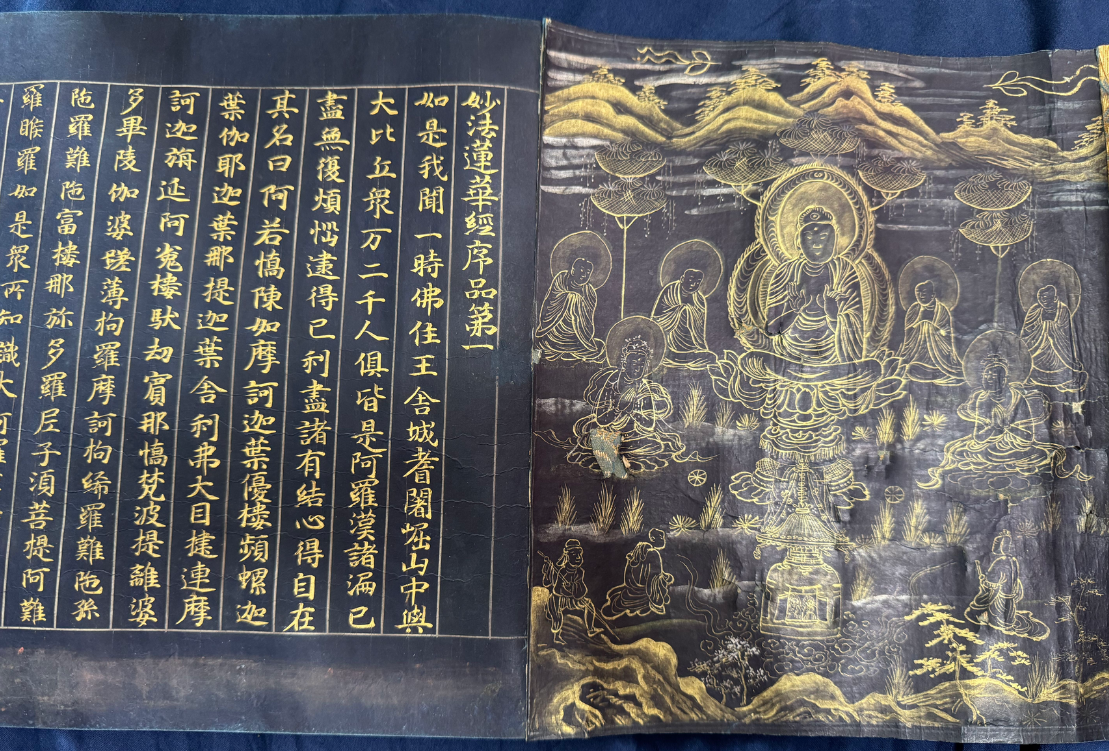 妙法蓮華經序品第一
如是我聞一時佛住王舍城耆闍崛山中與
大比丘衆万二千人俱皆是阿羅漢諸漏已
盡無復煩惱逮得己利盡諸有結心得自在
其名曰阿若憍陳如摩訶迦葉優樓頻螺迦
葉伽耶迦葉那提迦葉舍利弗大目揵連摩
訶迦旃延阿㝹樓馱劫賓那憍梵波提離婆
多畢陵伽婆蹉薄拘羅摩訶拘絺羅難陁孫
陁羅難陁富樓那弥多羅尼子湏菩提阿難
羅睺羅如是衆所知識大阿羅